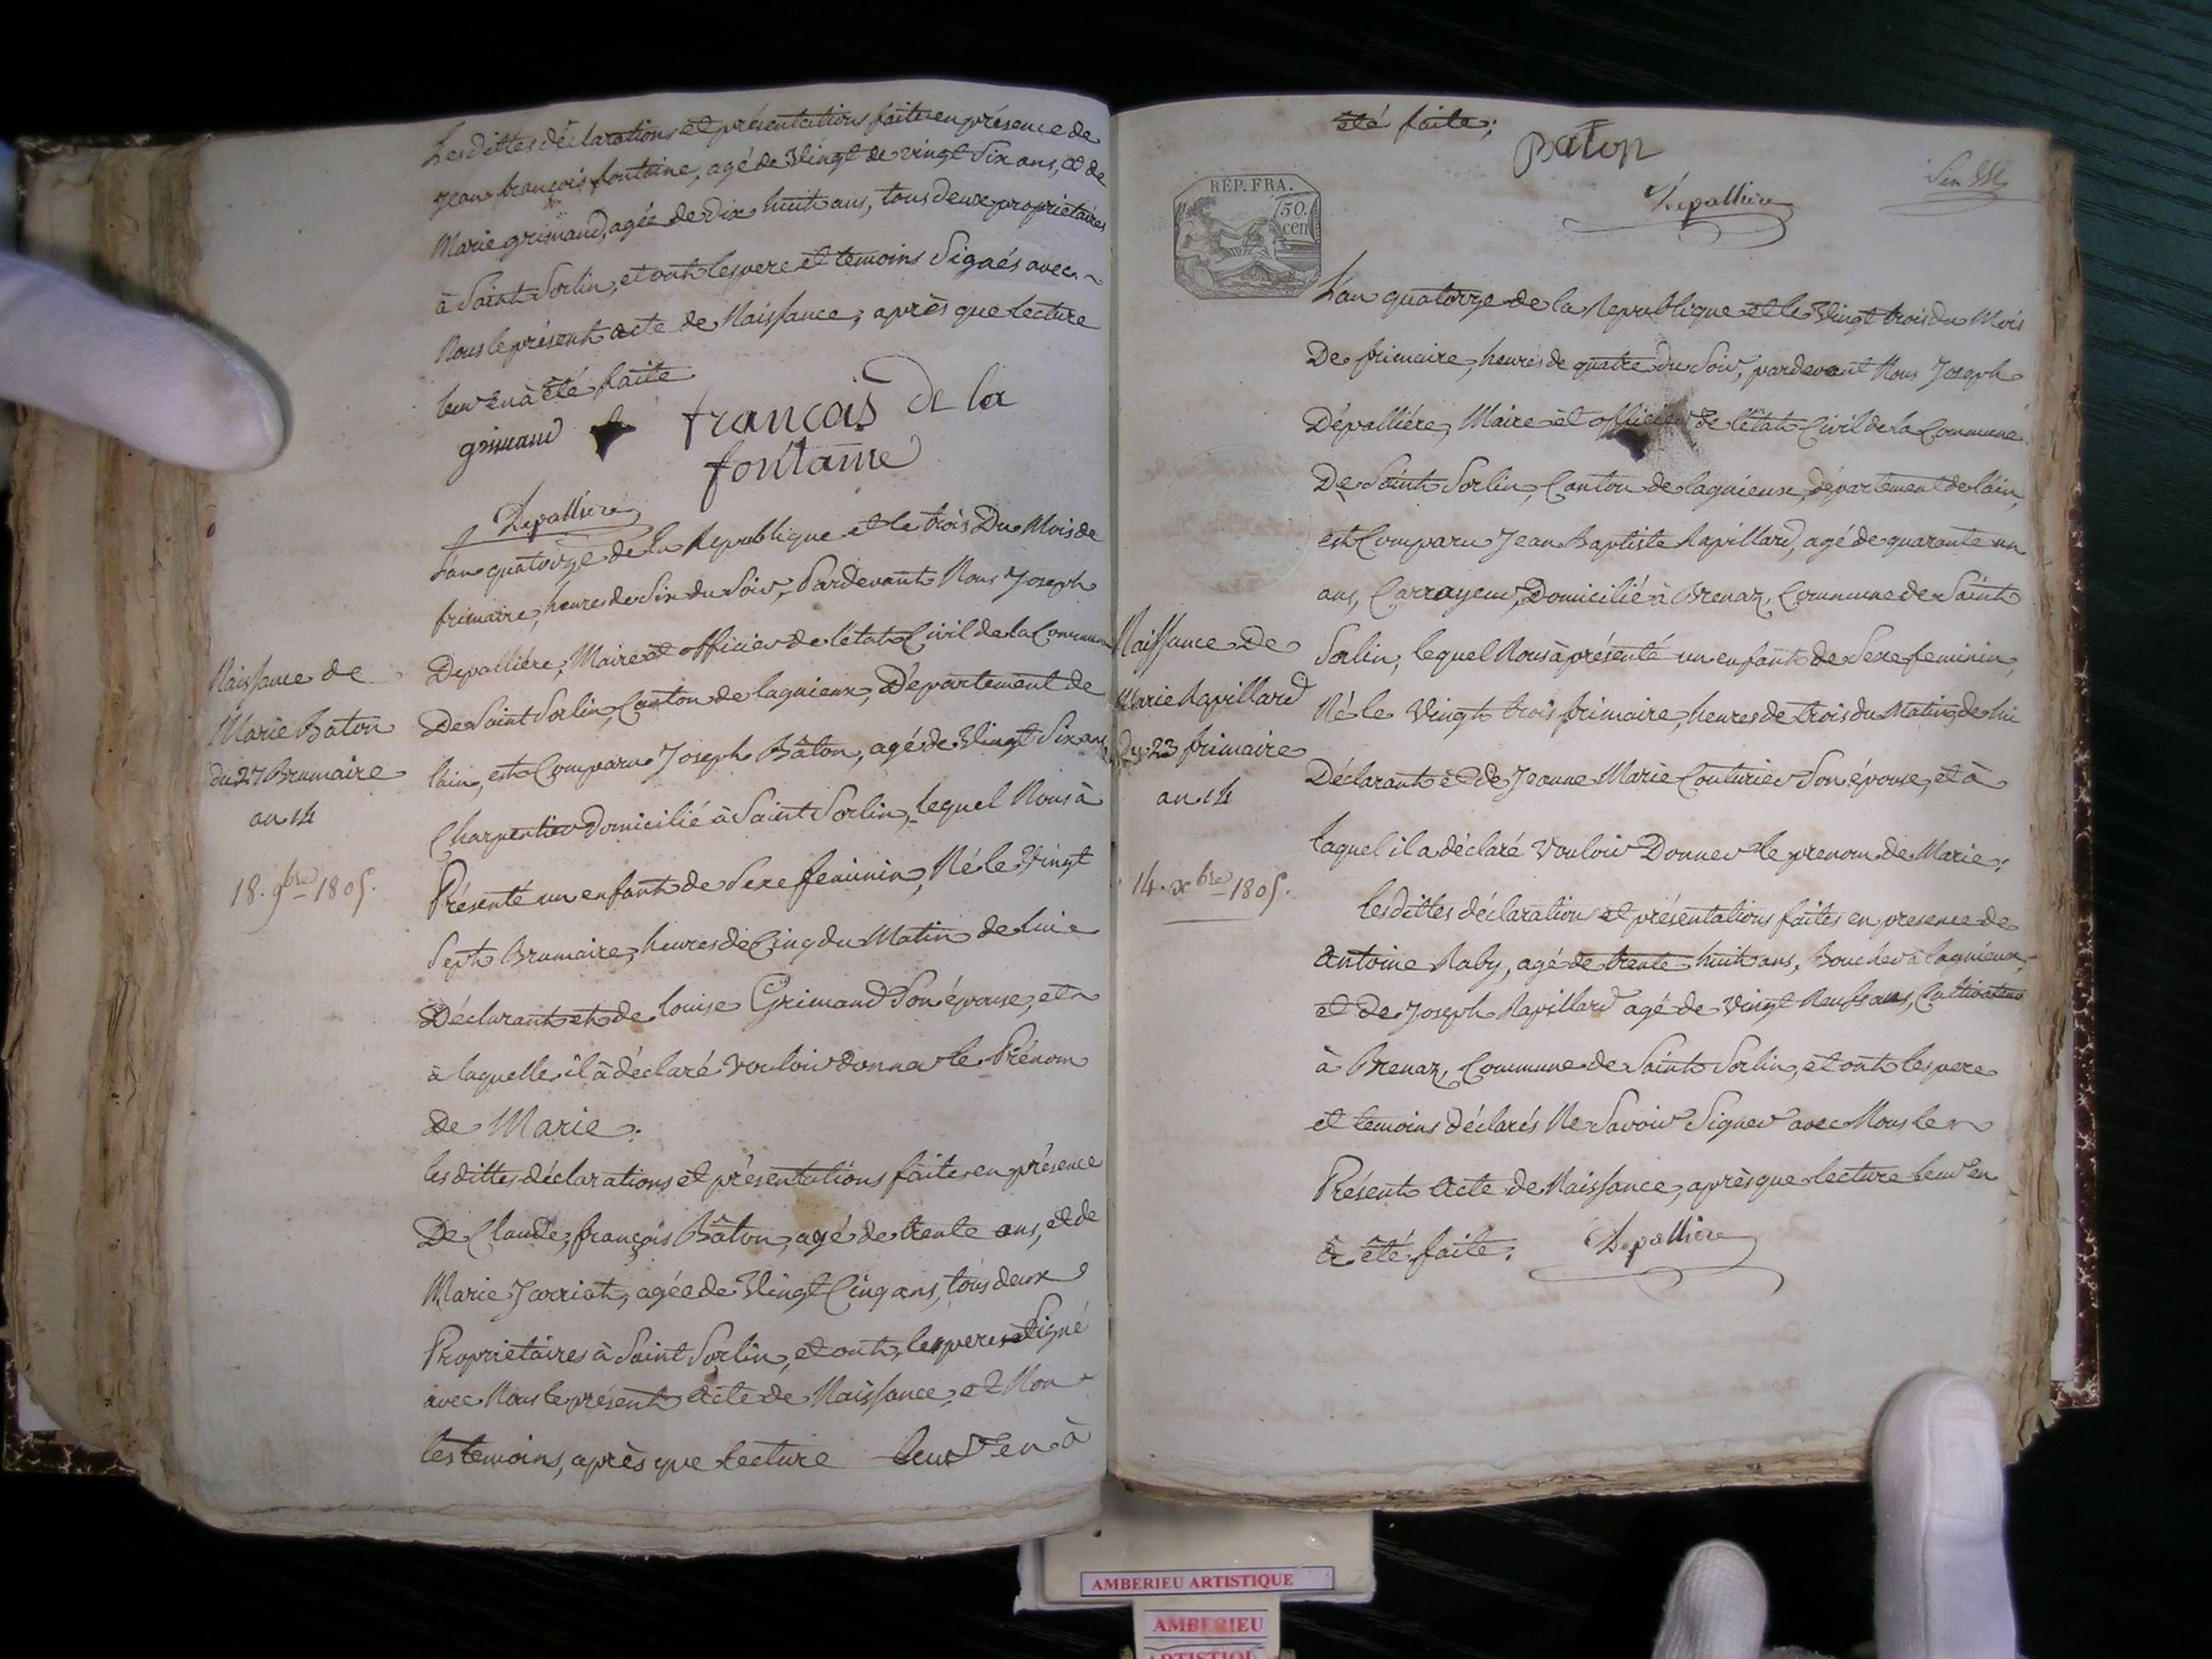 Lesdittes déclarations et présentations faites en présence de
Jean françois fontaine, agé de Vingt de vingt Six ans, et de
Marie grimaud, agée de dix huit ans, tous deux propriétaires
à Saint Sorlin, et ont les pere et temoins Signés avec
Nous le présent acte de Naissance, après que lecture
leur en à été faite
grimaud
francois de la
fontaine
Depallière
L'an quatorze de la Republique et le trois Du Mois de
frimaire, heures de Six du Soir, Pardevant Nous Joseph
Depalliére, Maire et officier de l'état Civil de la Commune
De Saint Sorlin, Canton de lagnieux, Département de
lain, est Comparu Joseph Bâton, agé de Vingt Six ans
Charpentier domicilié à Saint Sorlin, lequel Nous à
Présenté un enfant de Sexe feminin, Né le Vingt
Sept Brumaire, heures de Cinq du Matin de lui
Déclarant et de louise Grimaud Son épouse, et
à laquelle il à déclaré vouloir donner le Prénom
De Marie.
les dittes déclarations et présentations faites en présence
De Claude, françois Bâton, agé de trente ans, et de
Marie Jarriat, agée de Vingt Cinq ans, tous deux
Propriétaires à Saint Sorlin, et ont, le pere Signé
avec Nous le présent acte de Naissance, et Non
les temoins, après que lecture leur en à
Naissance de
Marie Baton
du 27 Brumaire
an 14
18. 9bre 1805.
été faite;
Baton
Depallière
RÉP. FRA.
50.
cen
L'an quatorze de la Republique et le Vingt trois du Mois
De frimaire, heures de quatre du Soir, pardevant Nous Joseph
Dépalliére, Maire et officier de l'état Civil de la Commune
De Saint Sorlin, Canton de lagnieux, département de lain,
est Comparu Jean Baptiste Rapillard, agé de quarante un
ans, Carrayeur, Domicilié à Brenaz, Commune de Saint
Sorlin, lequel Nous à présenté un enfant de Sexe feminin,
Né le Vingt trois frimaire, heures de trois du Matin, de lui
Déclarant et de Jeanne Marie Couturier Son épouse, et à
laquel il a déclaré Vouloir Donner le prenom de Marie;
les dittes déclarations et présentations faites en presence de
Antoine Raby, agé de trente huit ans, Boucher à lagnieux,
et de Joseph Rapillard agé de Vingt Neuf ans, Cultivateur
à Brenaz, Commune de Saint Sorlin, et ont les pere
et temoins déclarés Ne Savoir Signer avec Nous le
Présent Acte de Naissance, après que lecture leur en
à été faite.
Depallière
Naissance De
Marie Rapillard
Du 23 frimaire
an 14
14. xbre 1805.
AMBERIEU ARTISTIQUE
AMBERIEU
ARTISTIQU